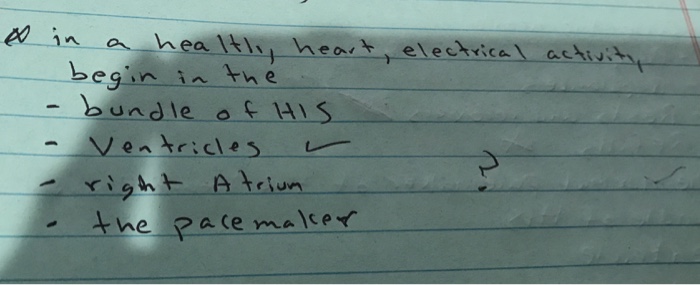 in a healthy heart, electrical activity
begin in the
- bundle of HIS
- Ventricles ✓
- right Atrium ?
- the pacemaker